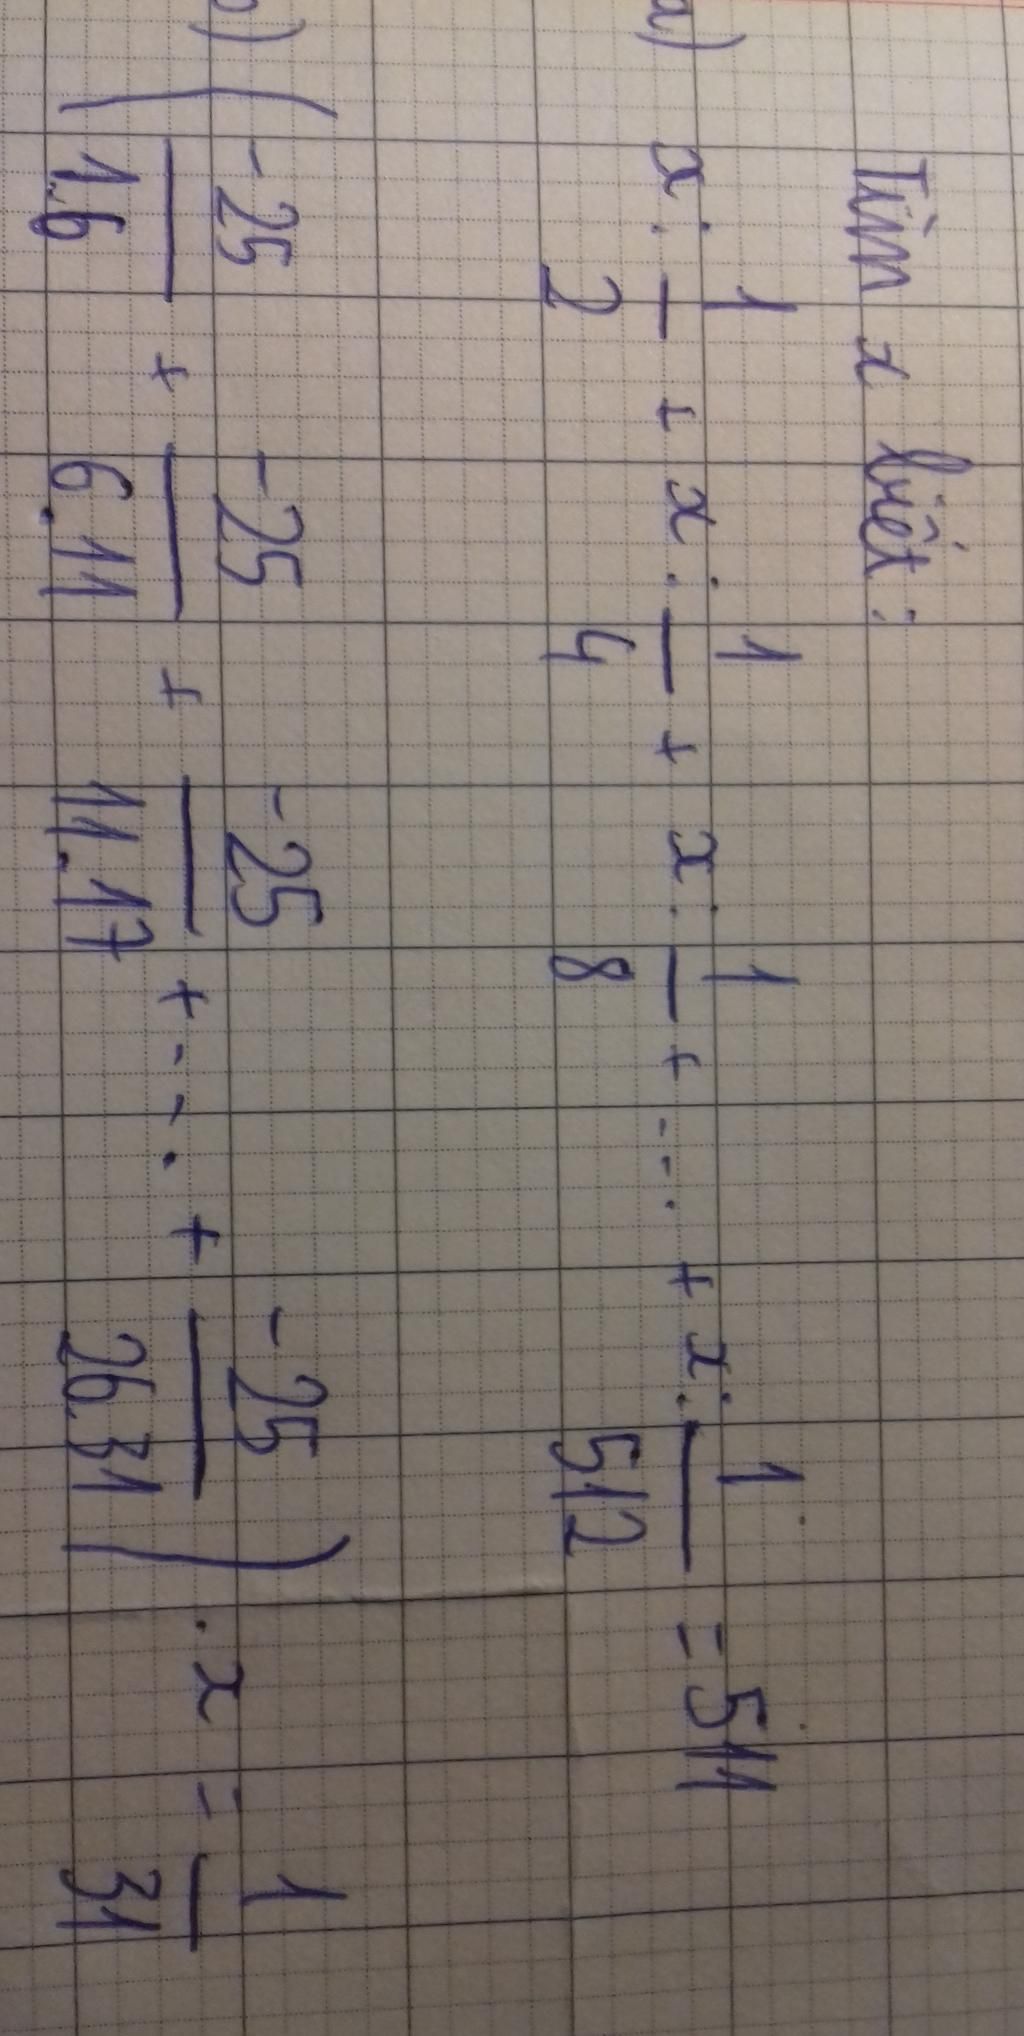 Tìm x biết:
a) x : 1/2 + x : 1/4 + x : 1/8 + .... + x : 1/512 = 511
b) (-25/1.6 + -25/6.11 + -25/11.17 + .... + -25/26.31) . x = 1/31